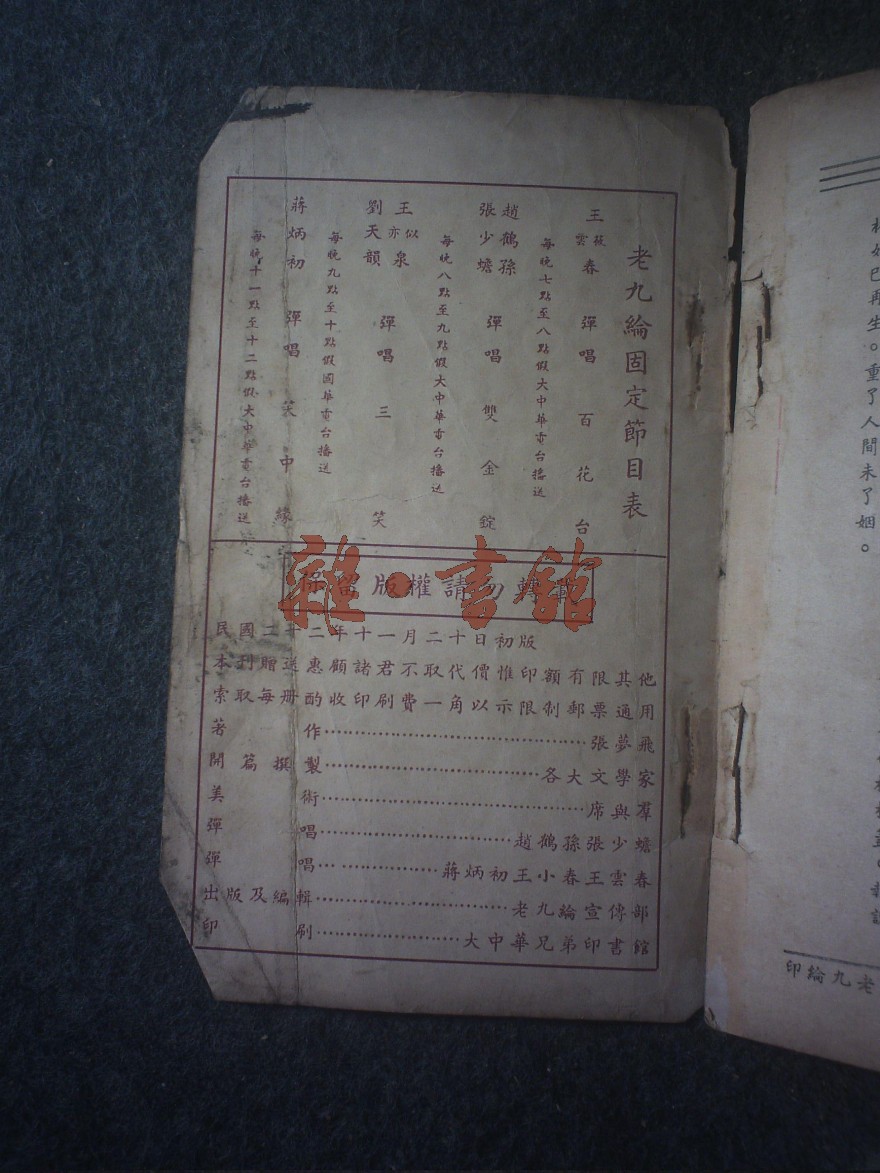 老九綸固定節目表
王筱雲春彈唱百花台
每晚七點至八點假大中華電台播送
趙鶴孫
張少蟾彈唱雙金錠
每晚八點至九點假大中華電台播送
王似泉
劉天韻彈唱三笑
每晚九點至十點假國華電台播送
蔣炳初彈唱笑中緣
每晚十一點至十二點假大中華電台播送
保留版權請勿轉載
民國二十二年十一月二十日初版
本刊贈送惠顧諸君不取代價惟印額有限其他
索取每册酌收印刷費一角以示限制郵票通用
著作……張夢飛
開篇撰製……各大文學家
美術……席與羣
彈唱……趙鶴孫張少蟾
彈唱……蔣炳初王小春王雲春
出版及編輯……老九綸宣傳部
印刷……大中華兄弟印書館
雜·書館
再生。重了人間未了姻。
老九綸印